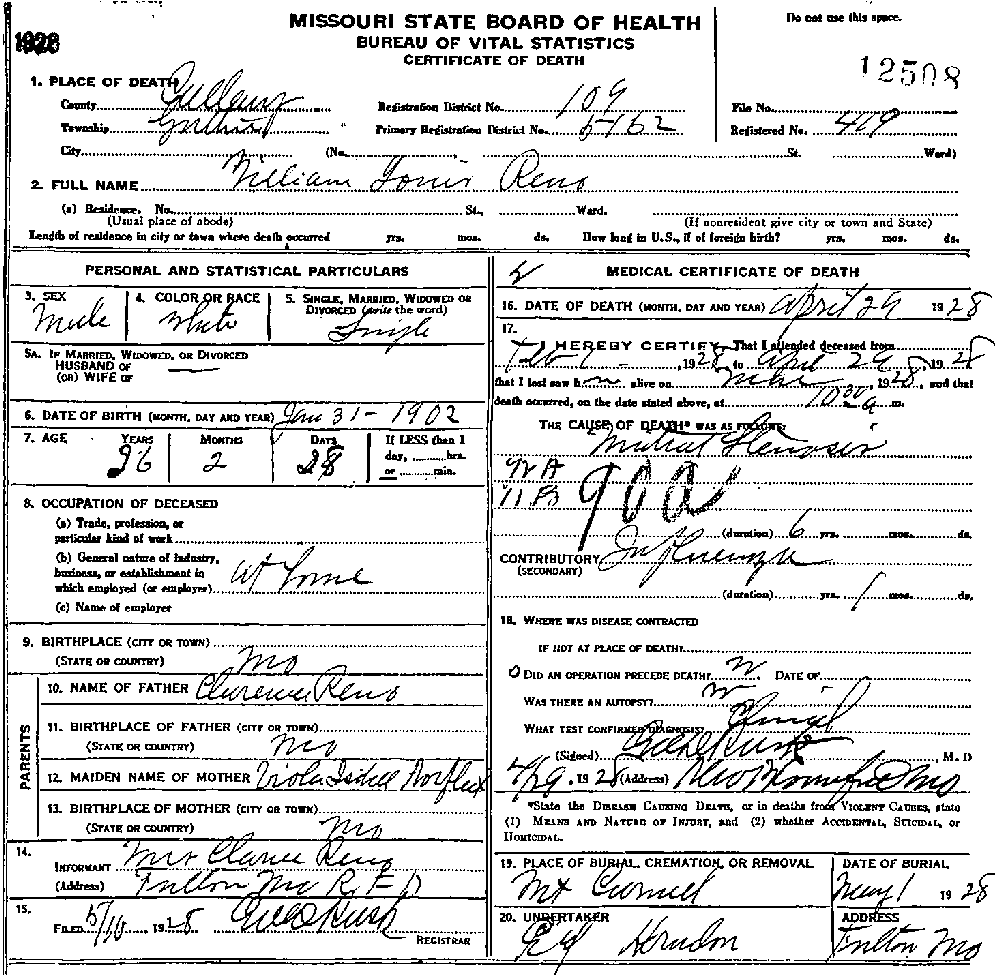 MISSOURI STATE BOARD OF HEALTH
BUREAU OF VITAL STATISTICS
CERTIFICATE OF DEATH
Do not use this space.
1928
12508
1. PLACE OF DEATH
County
Registration District No. 109
File No.
Township
Primary Registration District No. 5162
Registered No. 419
City (No. St. Ward)
2. FULL NAME William Louis Reno
(a) Residence. No. St., Ward.
(Usual place of abode) (If nonresident give city or town and State)
Length of residence in city or town where death occurred yrs. mos. ds. How long in U.S., if of foreign birth? yrs. mos. ds.
PERSONAL AND STATISTICAL PARTICULARS
3. SEX Male
4. COLOR OR RACE White
5. SINGLE, MARRIED, WIDOWED OR DIVORCED (write the word) Single
5A. IF MARRIED, WIDOWED, OR DIVORCED
HUSBAND OF
(OR) WIFE OF
6. DATE OF BIRTH (MONTH, DAY AND YEAR) Jan 31-1902
7. AGE YEARS MONTHS DAYS If LESS than 1
26 2 28 day, hrs.
or min.
8. OCCUPATION OF DECEASED
(a) Trade, profession, or
particular kind of work
(b) General nature of industry,
business, or establishment in
which employed (or employer) At Home
(c) Name of employer
9. BIRTHPLACE (CITY OR TOWN)
(STATE OR COUNTRY) Mo
PARENTS
10. NAME OF FATHER Clarence Reno
11. BIRTHPLACE OF FATHER (CITY OR TOWN)
(STATE OR COUNTRY) Mo
12. MAIDEN NAME OF MOTHER Viola Isabell
13. BIRTHPLACE OF MOTHER (CITY OR TOWN)
(STATE OR COUNTRY) Mo
14.
INFORMANT Mr Clarence Reno
(Address) Fulton Mo R.F.D
15.
FILED 5/10 1928
REGISTRAR
MEDICAL CERTIFICATE OF DEATH
16. DATE OF DEATH (MONTH, DAY AND YEAR) April 29 1928
17.
I HEREBY CERTIFY, That I attended deceased from
Feb 1928, to April 29, 1928
that I last saw h alive on, 1928, and that
death occurred, on the date stated above, at 10 30 a m.
THE CAUSE OF DEATH* WAS AS FOLLOWS:
Mitral Stenosis
92A
11B
90a
(duration) 6 yrs. mos. ds.
CONTRIBUTORY Influenza
(SECONDARY)
(duration) yrs. 1 mos. ds.
18. WHERE WAS DISEASE CONTRACTED
IF NOT AT PLACE OF DEATH?
DID AN OPERATION PRECEDE DEATH? DATE OF
WAS THERE AN AUTOPSY?
WHAT TEST CONFIRMED DIAGNOSIS? Clinical
(Signed) M. D
4/29, 1928 (Address) New Bloomfield Mo
*State the DISEASE CAUSING DEATH, or in deaths from VIOLENT CAUSES, state
(1) MEANS AND NATURE OF INJURY, and (2) whether ACCIDENTAL, SUICIDAL, or
HOMICIDAL.
19. PLACE OF BURIAL, CREMATION, OR REMOVAL DATE OF BURIAL
Mt Carmel May 1 1928
20. UNDERTAKER ADDRESS
Herndon Fulton Mo